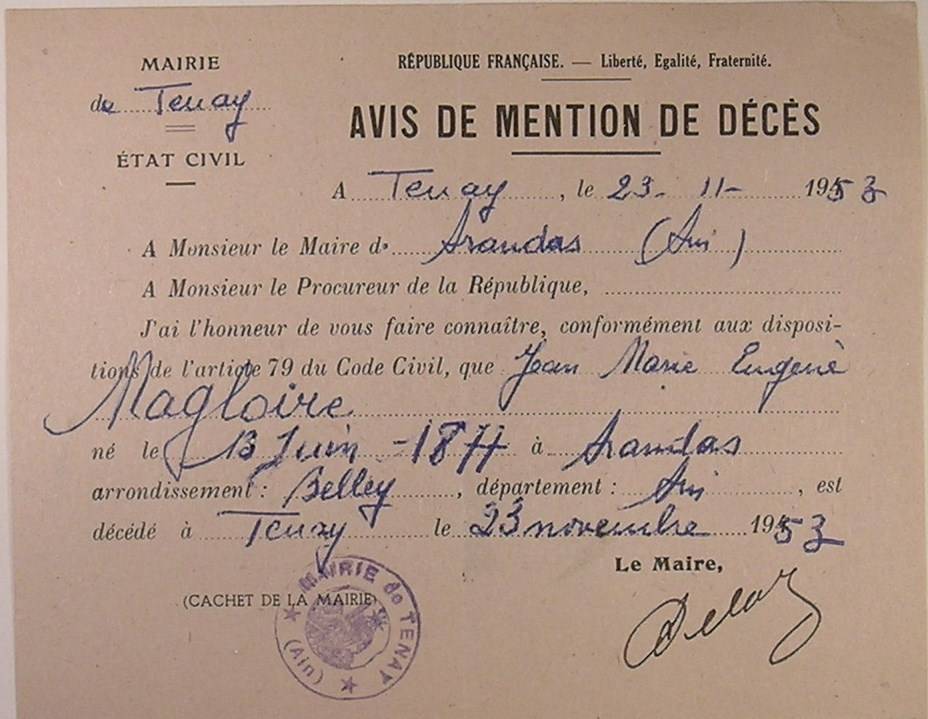 MAIRIE
de Tenay
ÉTAT CIVIL
RÉPUBLIQUE FRANÇAISE. — Liberté, Egalité, Fraternité.
AVIS DE MENTION DE DÉCÈS
A Tenay, le 23-11-1953
A Monsieur le Maire d. Arandas (Ain)
A Monsieur le Procureur de la République,
J'ai l'honneur de vous faire connaître, conformément aux disposi-
tions de l'article 79 du Code Civil, que Jean Marie Eugène
Magloire
né le 13 Juin - 1877 à Arandas
arrondissement : Belley, département : Ain, est
décédé à Tenay le 23 novembre 1953
Le Maire,
(CACHET DE LA MAIRIE)
MAIRIE de TENAY
(Ain)